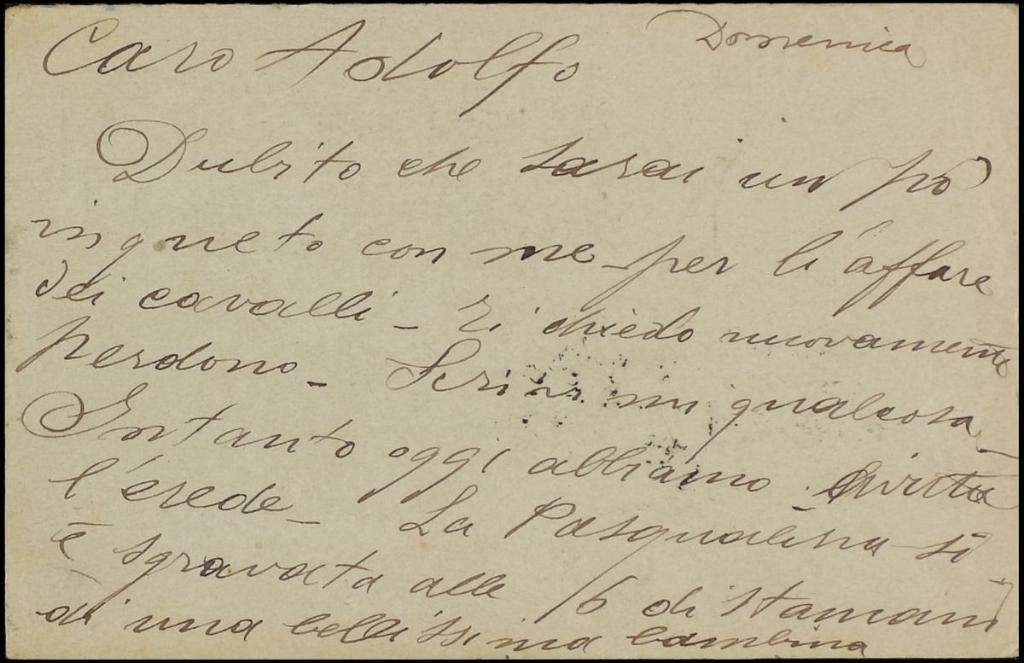 Domenica
Caro Adolfo
Dubito che sarai un pò
inqueto con me per l'affare
dei cavalli - Ti chiedo nuovamente
perdono - Scrivi mi qualcosa -
Intanto oggi abbiamo
l'erede - La Pasqualina si
è sgravata alle 6 di stamani
di una bellissima bambina